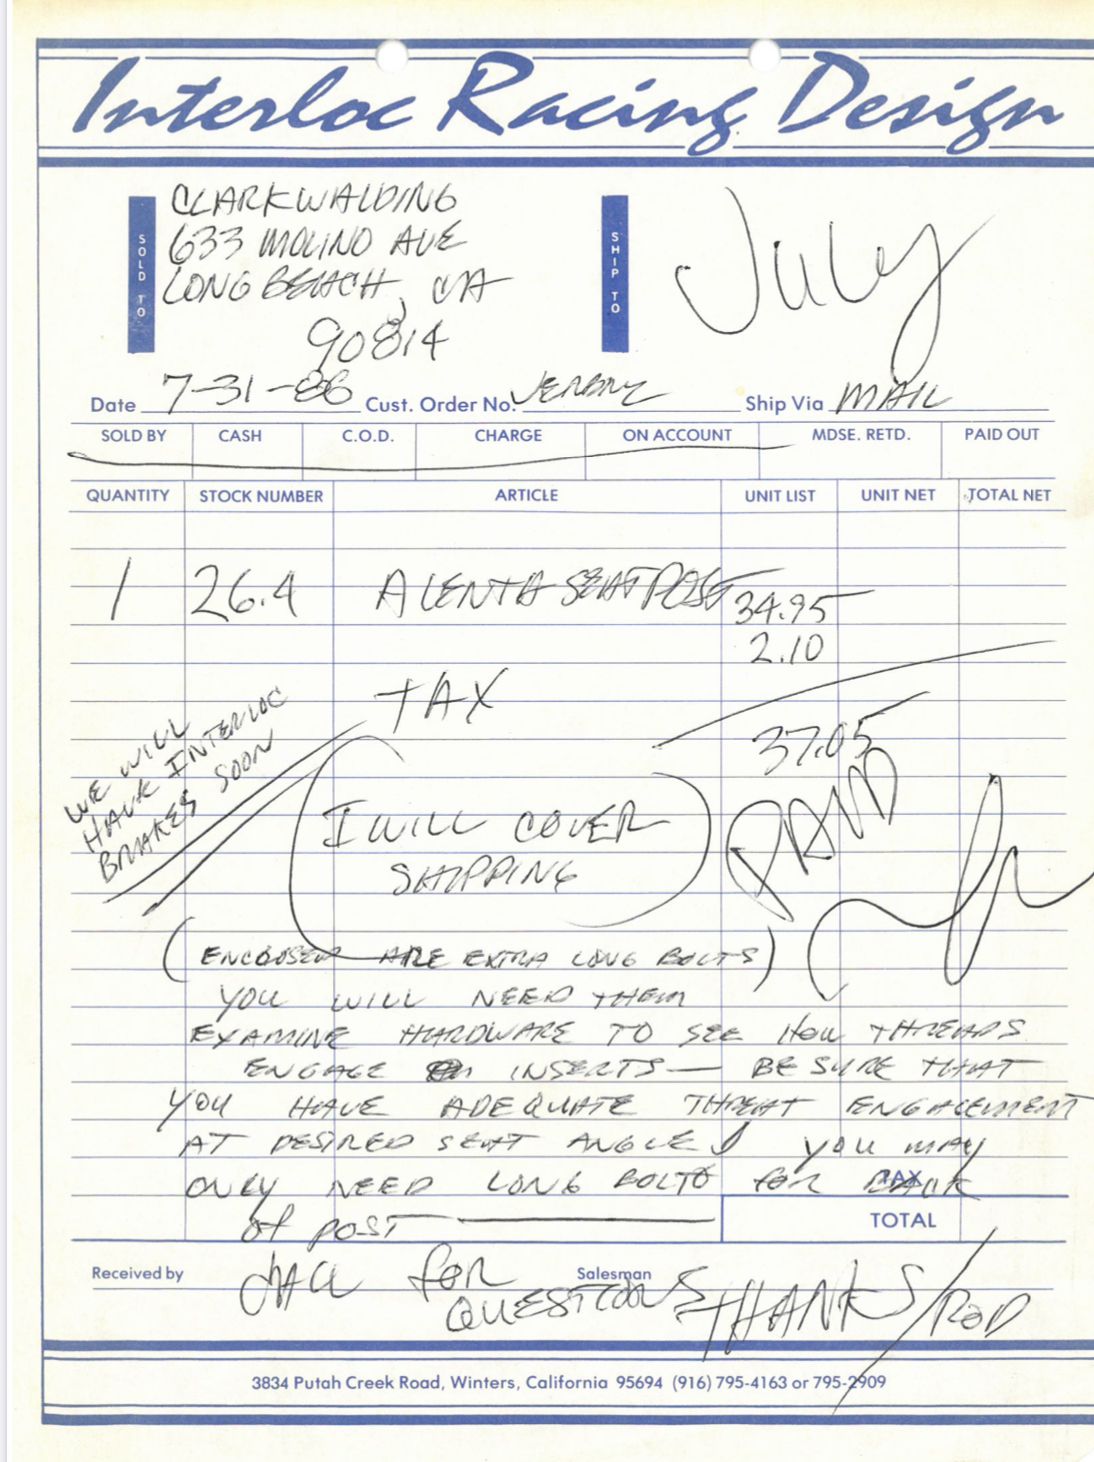 Interloc Racing Design
SOLD TO
CLARK WALDING
633 MOLINO AVE
LONG BEACH, CA
90814
SHIP TO
July
Date 7-31-86 Cust. Order No. Ship Via MAIL
SOLD BY CASH C.O.D. CHARGE ON ACCOUNT MDSE. RETD. PAID OUT
QUANTITY STOCK NUMBER ARTICLE UNIT LIST UNIT NET TOTAL NET
1 26.4 A LENTA SEATPOST 34.95
2.10
TAX
37.05
WE WILL
HAVE INTERLOC
BRAKES SOON
PAID
I WILL COVER
SHIPPING
(ENCLOSED ARE EXTRA LONG BOLTS)
YOU WILL NEED THEM
EXAMINE HARDWARE TO SEE HOW THREADS
ENGAGE INSERTS — BE SURE THAT
YOU HAVE ADEQUATE THREAT ENGAGEMENT
AT DESIRED SEAT ANGLE! YOU MAY
ONLY NEED LONG BOLTS for BACK
TAX
of POST
TOTAL
Received by CALL for Salesman
QUESTIONS THANKS/ROD
3834 Putah Creek Road, Winters, California 95694 (916) 795-4163 or 795-2909